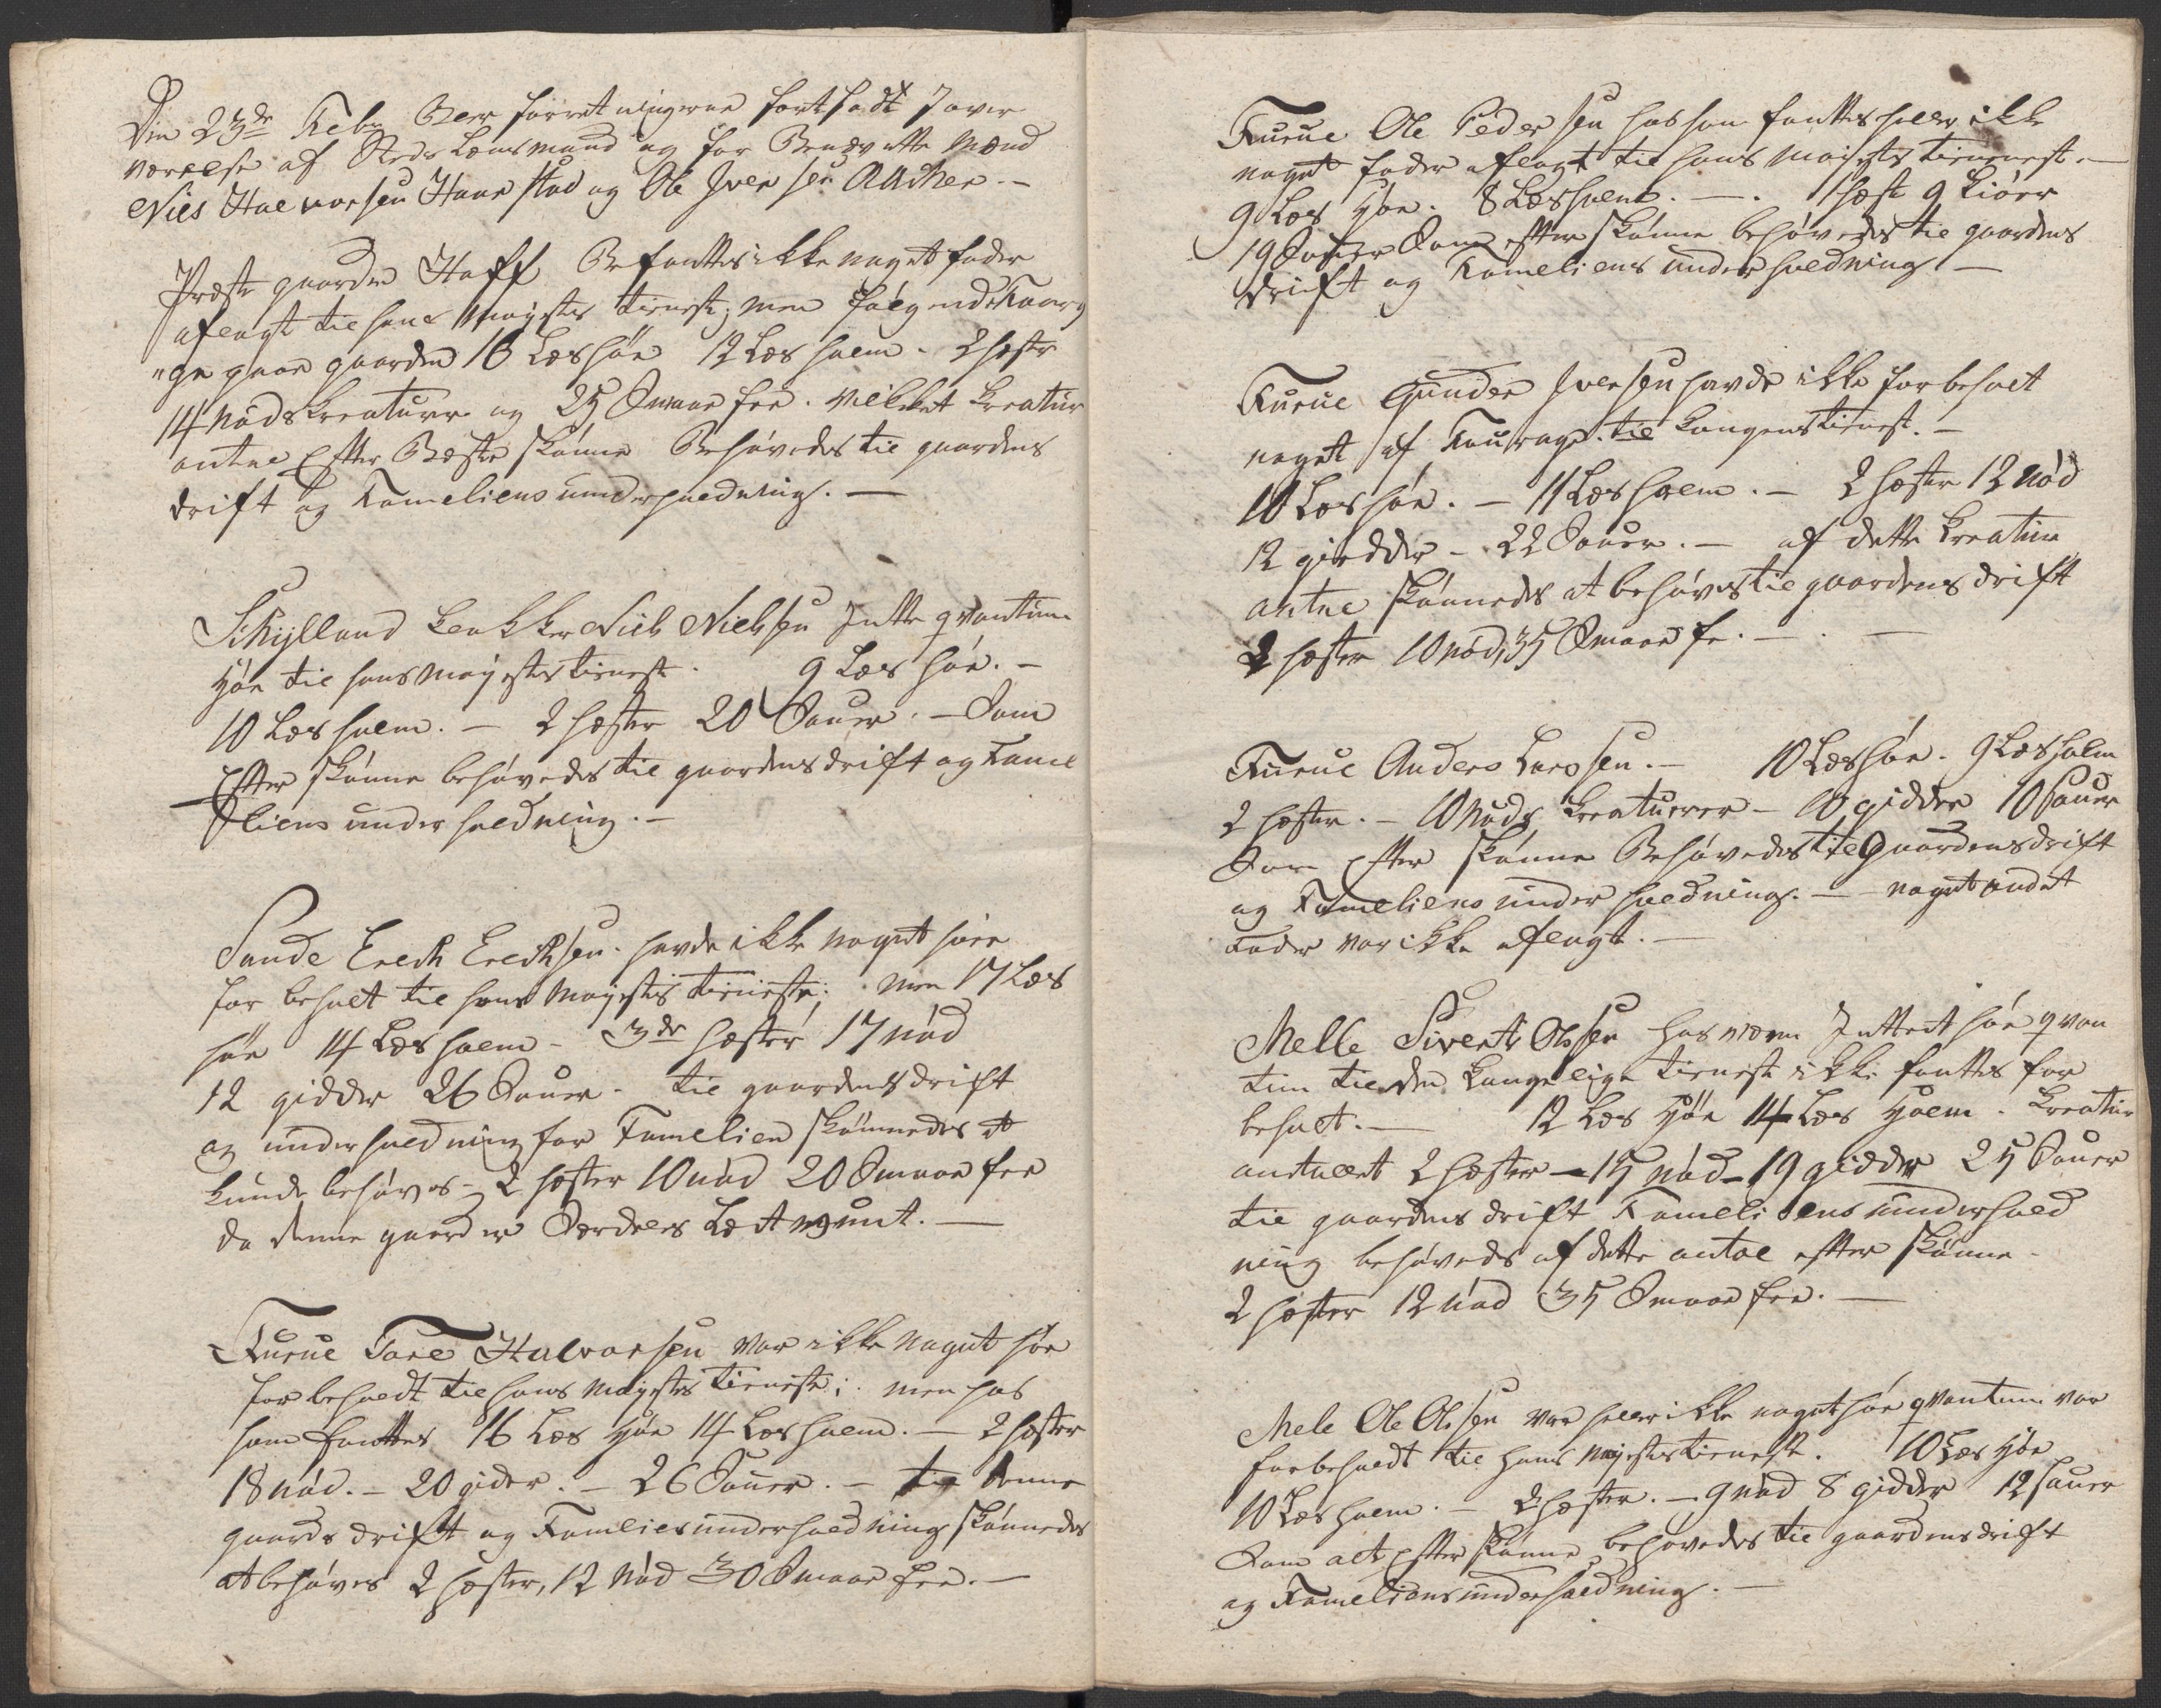 Den 23de Febr Blev forretningerne fortsadt J over
værelse af Steds Lensmand og for Benævnte Mænd
Niels Halvorsen Haarstad og Ole Iversen Aucher. –
Præste gaarden Hoff Befantes ikke noget foder
aflagt til hans Mayestes tieneste; men følgende Foura
"ge paa gaarden 16 Læs høe 12 Læs halm. 2 hester
14 Nødskreaturer og 25 Smaae fee. Vilket Kreatur
antal Efter Beste skiønne Behøvedes til gaardens
drift og Fameliens underholdning. –
Schjelland Niels Nielsen Intet qvantum
Høe til hans Mayestes tieneste. 9 Læs høe. –
10 Læs halm. – 2 hester 20 Souer. – Som
Efter skiønne behøvedes til gaardens drift og Fame
liens underholdning. –
Sande Erech Erechsen. havde ikke noget høe
for beholt til hans Mayestes tieneste; men 17 Læs
høe 14 Læs halm – 3de hester 17 nød
12 gidder 26 Souer. til gaardens drift
og underholdning for Famelien skiønnedes at
kunde behøves – 2 hester 10 nød 20 Smaae fee
da denne gaard er Særdeles Let
Furue Tore Halvorsen var ikke noget høe
forbeholdt til hans Mayestes tieneste; men hos
ham fantes 16 Læs høe 14 Læs halm. – 2 hester
18 nød. – 20 gider. – 26 Souer. – til denne
gaards drift og Families underholdning skiønnedes
at behøves 2 hester, 12 Nød 30 Smaae fee. –
Furue Ole Pedersen hos ham fantes heller ikke
noget foder aflagt til hans Mayestes tieneste. –
9 Læs Høe. 8 Læs halm. – . 1 hest 9 kiøer
19 Souer Som efter skiønne behøvedes til gaardens
drift og Fameliens underholdning –
Furue Gunder Iversen havde ikke for beholt
noget af Fourage til Kongens tieneste. –
10 Læs høe. – 11 Læs halm. – 2 hester 12 nød
12 giedder – 22 Souer. – af dette Kreatur
antal skiønnedes at behøves til gaardens drift
2 hester 10 nød, 35 Smaae fe. – . –
Furue Anders Larssen. – 10 Læs høe. 9 Læs halm
2 hester. – 10 Nøds Kreaturer – 10 gidder 10 Souer
Som Efter skiønne Behøvedes til Gaardens drift
og Fameliens underholdning. – noget andet
Foder var ikke aflagt. –
Melle Sivert Olssen hos Intet høe qvan
tum til den Kongelige tieneste ikke fantes for
beholt. – 12 Læs Høe 14 Læs Halm. Kreatur
antallet 2 hester – 15 nød – 19 gidder 25 Souer
til gaardens drift Fameliens underhold
ning behøvedes af dette antal efter skiønne –
2 hester 12 nød 35 Smaae fee. –
Mele Ole Olssen var heller ikke noget høe qvantum var
forbeholdt til hans Mayestes tieneste. 10 Læs Høe
10 Læs halm. – 2 hester. – 9 nød 8 gidder 12 Souer
Som alt Efter skiønne behøvedes til gaardens drift
og Fameliens underholdning. –